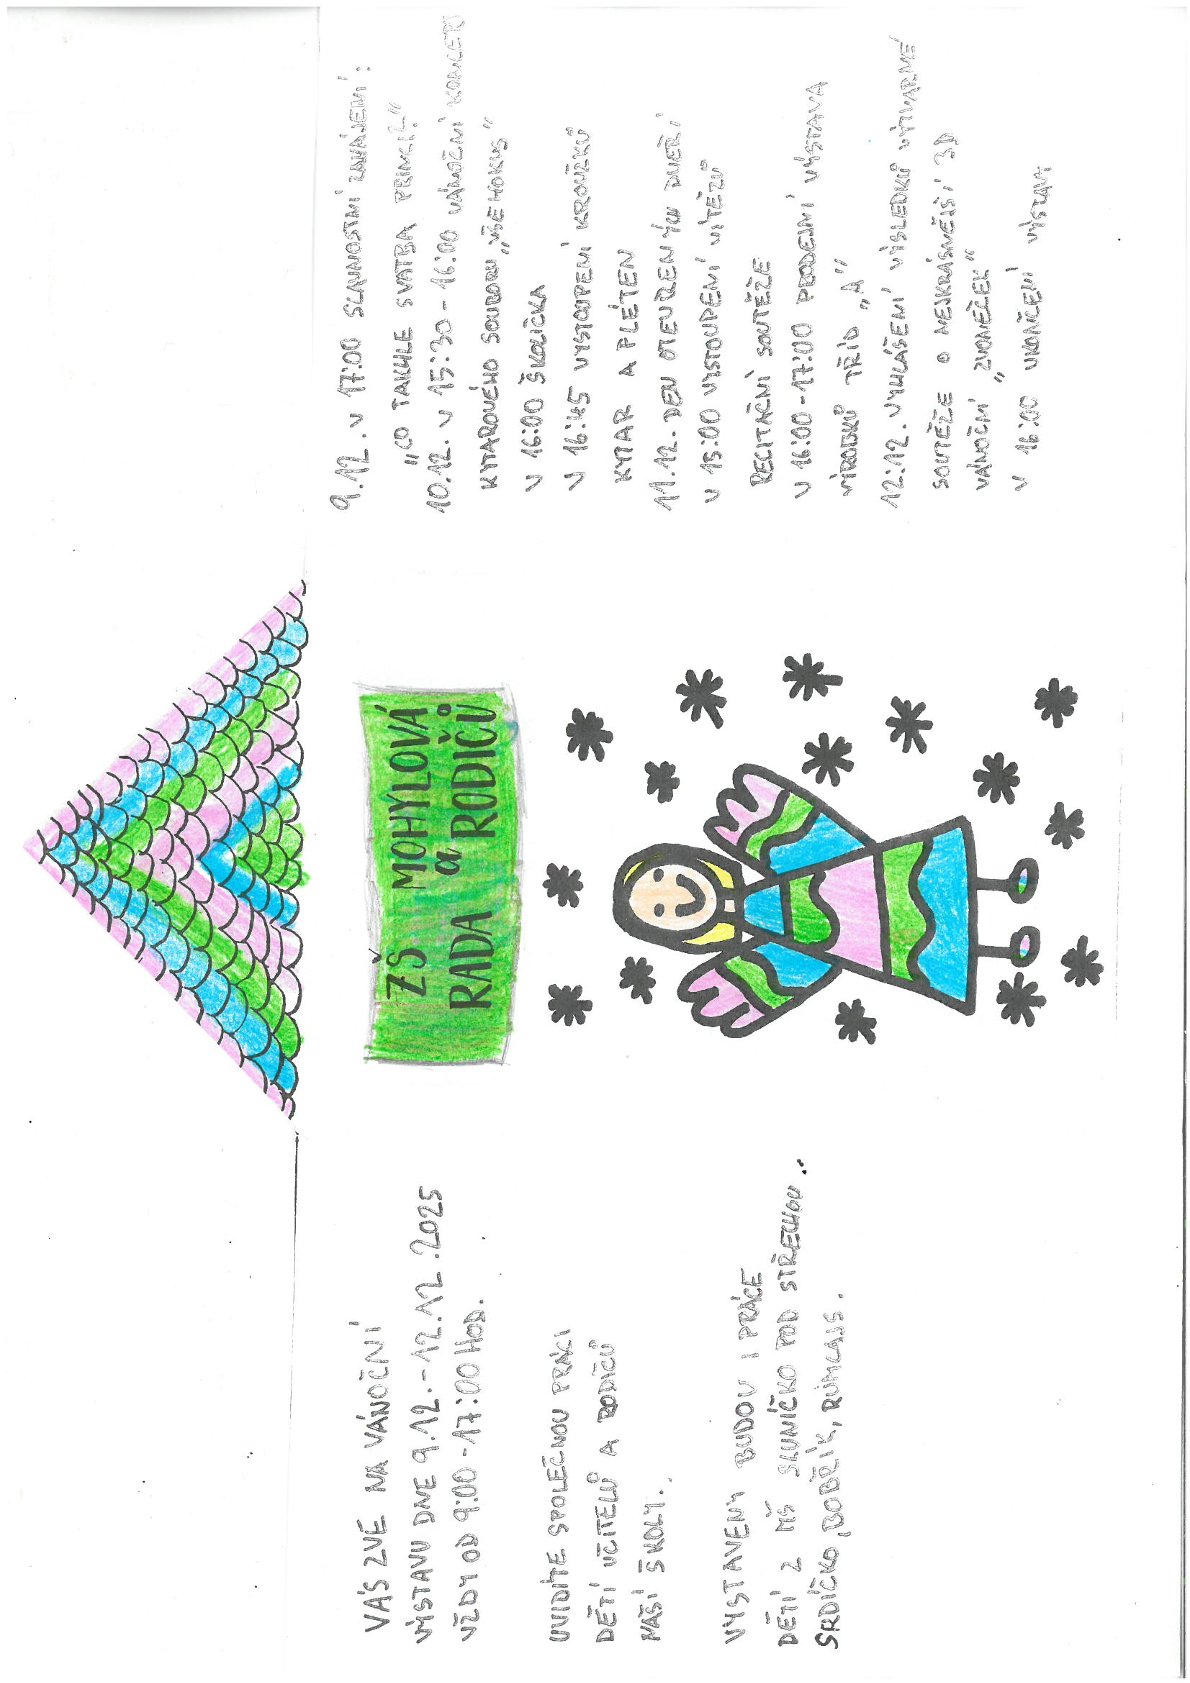 ZŠ MOHYLOVÁ
a
RADA RODIČŮ
VÁS ZVE NA VÁNOČNÍ
VÝSTAVU DNE 9.12.-12.12.2025
VŽDY OD 9:00-17:00 HOD.
UVIDÍTE SPOLEČNOU PRÁCI
DĚTÍ UČITELŮ A RODIČŮ
NAŠÍ ŠKOLY..
VYSTAVENY BUDOU I PRÁCE
DĚTÍ Z MŠ SLUNÍČKO POD STŘECHOU..
SRDÍČKO, BOBŘÍK, RUMCAJS.
9.12. V 17:00 SLAVNOSTNÍ ZAHÁJENÍ:
„CO TAKHLE SVATBA PRINCI?“
10.12. V 15:30-16:00 VÁNOČNÍ KONCERT
KYTAROVÉHO SOUBORU „VŠEHOKUS“
V 16:00 ŠKOLIČKA
V 16:45 VYSTOUPENÍ KROUŽKŮ
KYTAR A FLÉTEN
11.12. DEN OTEVŘENÝCH DVEŘÍ
V 15:00 VYSTOUPENÍ VÍTĚZŮ
RECITAČNÍ SOUTĚŽE
V 16:00-17:00 PRODEJNÍ VÝSTAVA
VÝROBKŮ TŘÍD „A“
12.12. VYHLÁŠENÍ VÝSLEDKŮ VÝTVARNÉ
SOUTĚŽE O NEJKRÁSNĚJŠÍ 3D
VÁNOČNÍ „ZVONEČEK“
V 16:00 UKONČENÍ VÝSTAVY